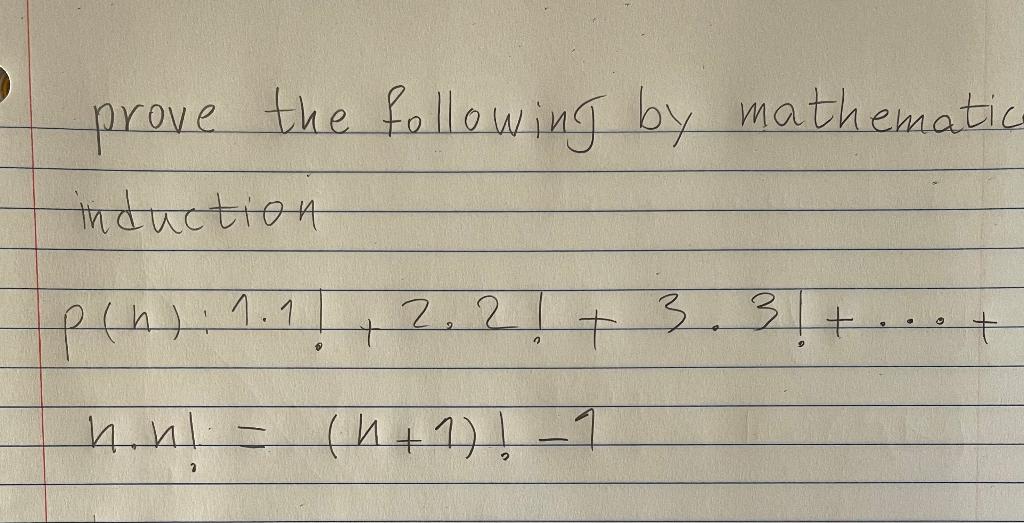 prove the following by mathematic
induction
p(n): 1.1! + 2.2! + 3.3! + ... +
n.n! = (n+1)! -1